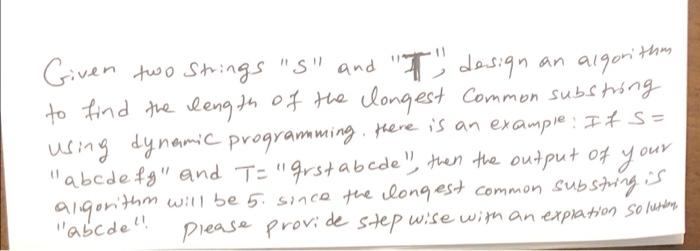 Given two strings "S" and "T", design an algorithm
to find the length of the longest Common substring
using dynamic programming. Here is an example: If S =
"abcdefg" and T= "grstabcde", then the output of your
algorithm will be 5. since the longest common substring is
"abcde". Please provide stepwise with an explation solution.